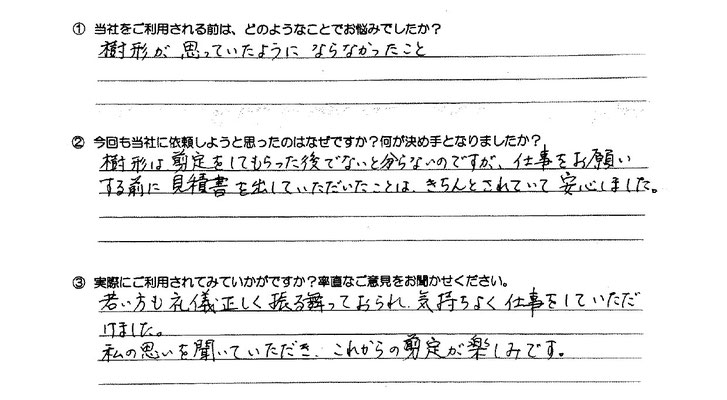 ① 当社をご利用される前は、どのようなことでお悩みでしたか？
樹形が思っていたようにならなかったこと
② 今回も当社に依頼しようと思ったのはなぜですか？何が決め手となりましたか？
樹形は剪定をしてもらった後でないと分らないのですが、仕事をお願い
する前に見積書を出していただいたことは、きちんとされていて安心しました。
③ 実際にご利用されてみていかがですか？率直なご意見をお聞かせください。
若い方も礼儀正しく振る舞っておられ、気持ちよく仕事をしていただ
けました。
私の思いを聞いていただき、これからの剪定が楽しみです。